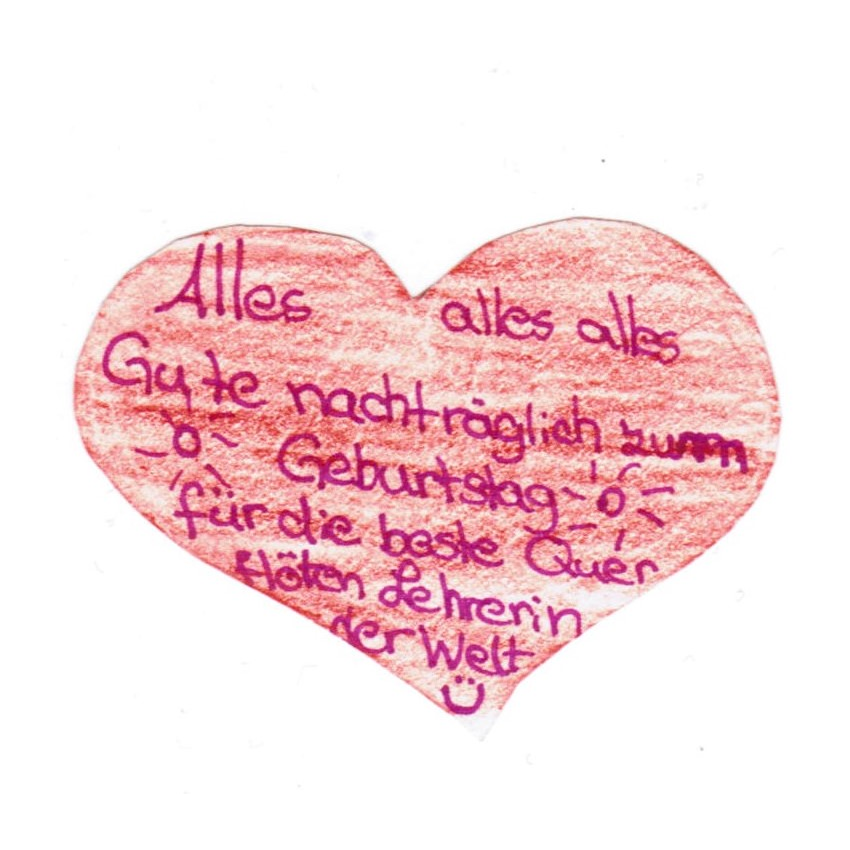 Alles alles alles
Gute nachträglich zum
Geburtstag
für die beste Quer
flöten Lehrerin
der Welt